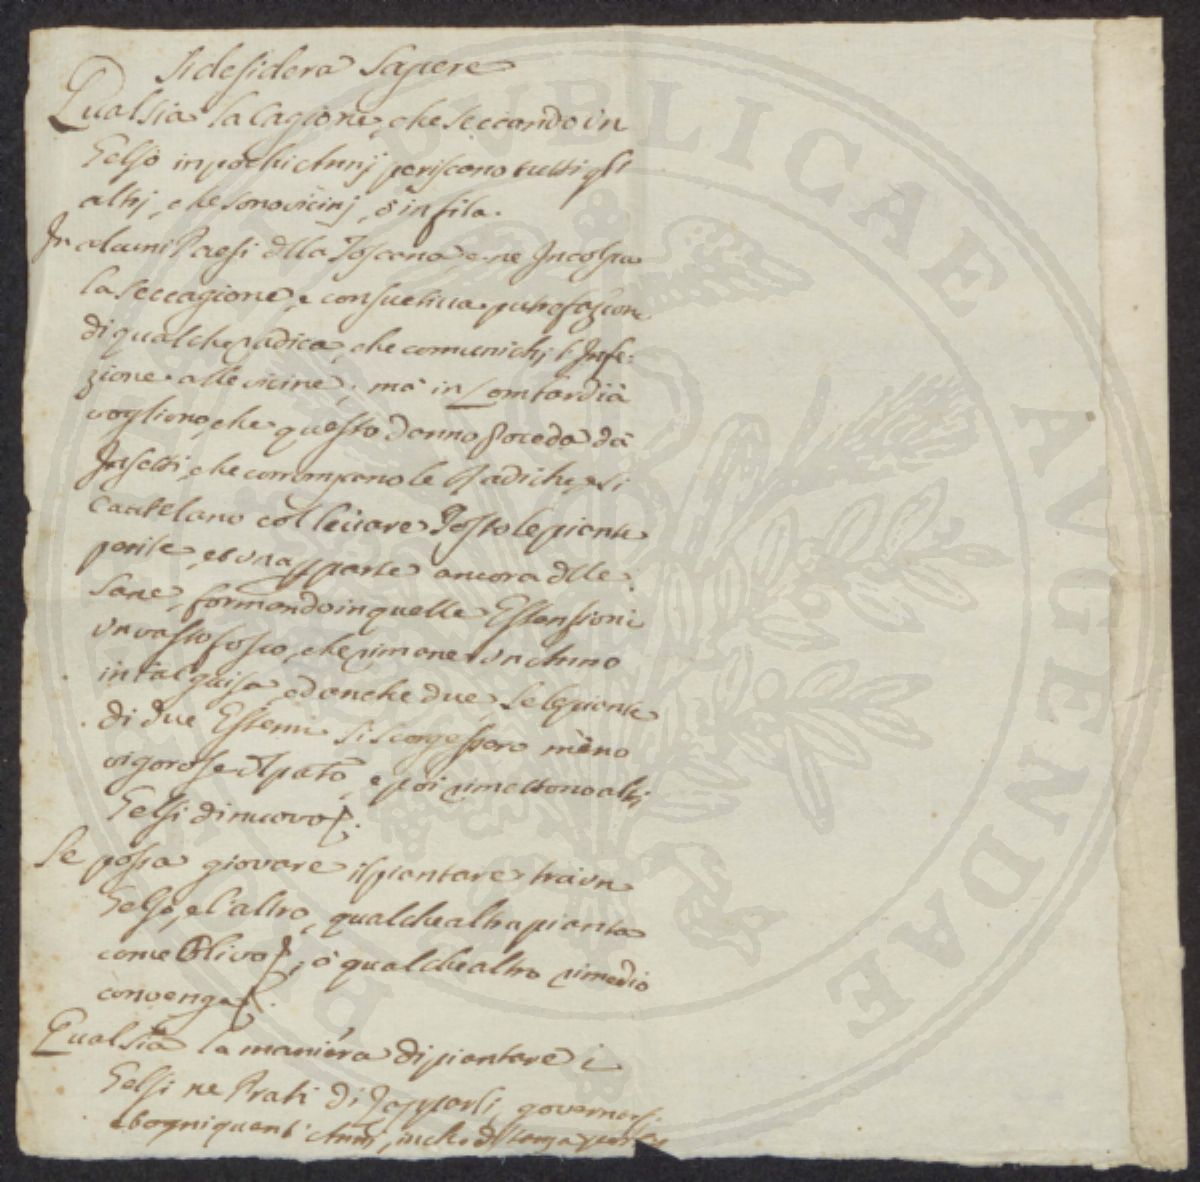 Si desidera sapere
Qual sia la cagione, che seccando un
Gelso in pochi Annj periscono tutti gli
altrj, che sono vicinj, ò in fila.
In alcuni Paesi dlla Toscana, e ne Incolpa
la seccagione, e consuetiva putrefazione
di qualche radica, che comunichj l'Infe:
zione alle vicine; mà in Lombardia
vogliono, che questo danno proceda dà
Insetti, che corrompano le Radiche, e si
cautelano col levare Tosto le piante
perite, et una parte ancora dlle
sane, formando in quelle Estensioni
un vasto fosso, che rimane un Anno
in tal guisa, ed anche due, se le piante
di due Estremi si scorgessero meno
vigorose dl passato, e poi rimettono altri
Gelsi di nuovo.
Se possa giovare il piantare trà un
Gelso, e l'altro, qualche altra pianta
come Olivo; ò qualche altro rimedio
convenga.
Qual sia la maniera di piantare i
Gelsi ne Prati di Zapparli, governarsi
ed ogni quanti Annj, in che distanza
PVBLICAE AVGENDAE